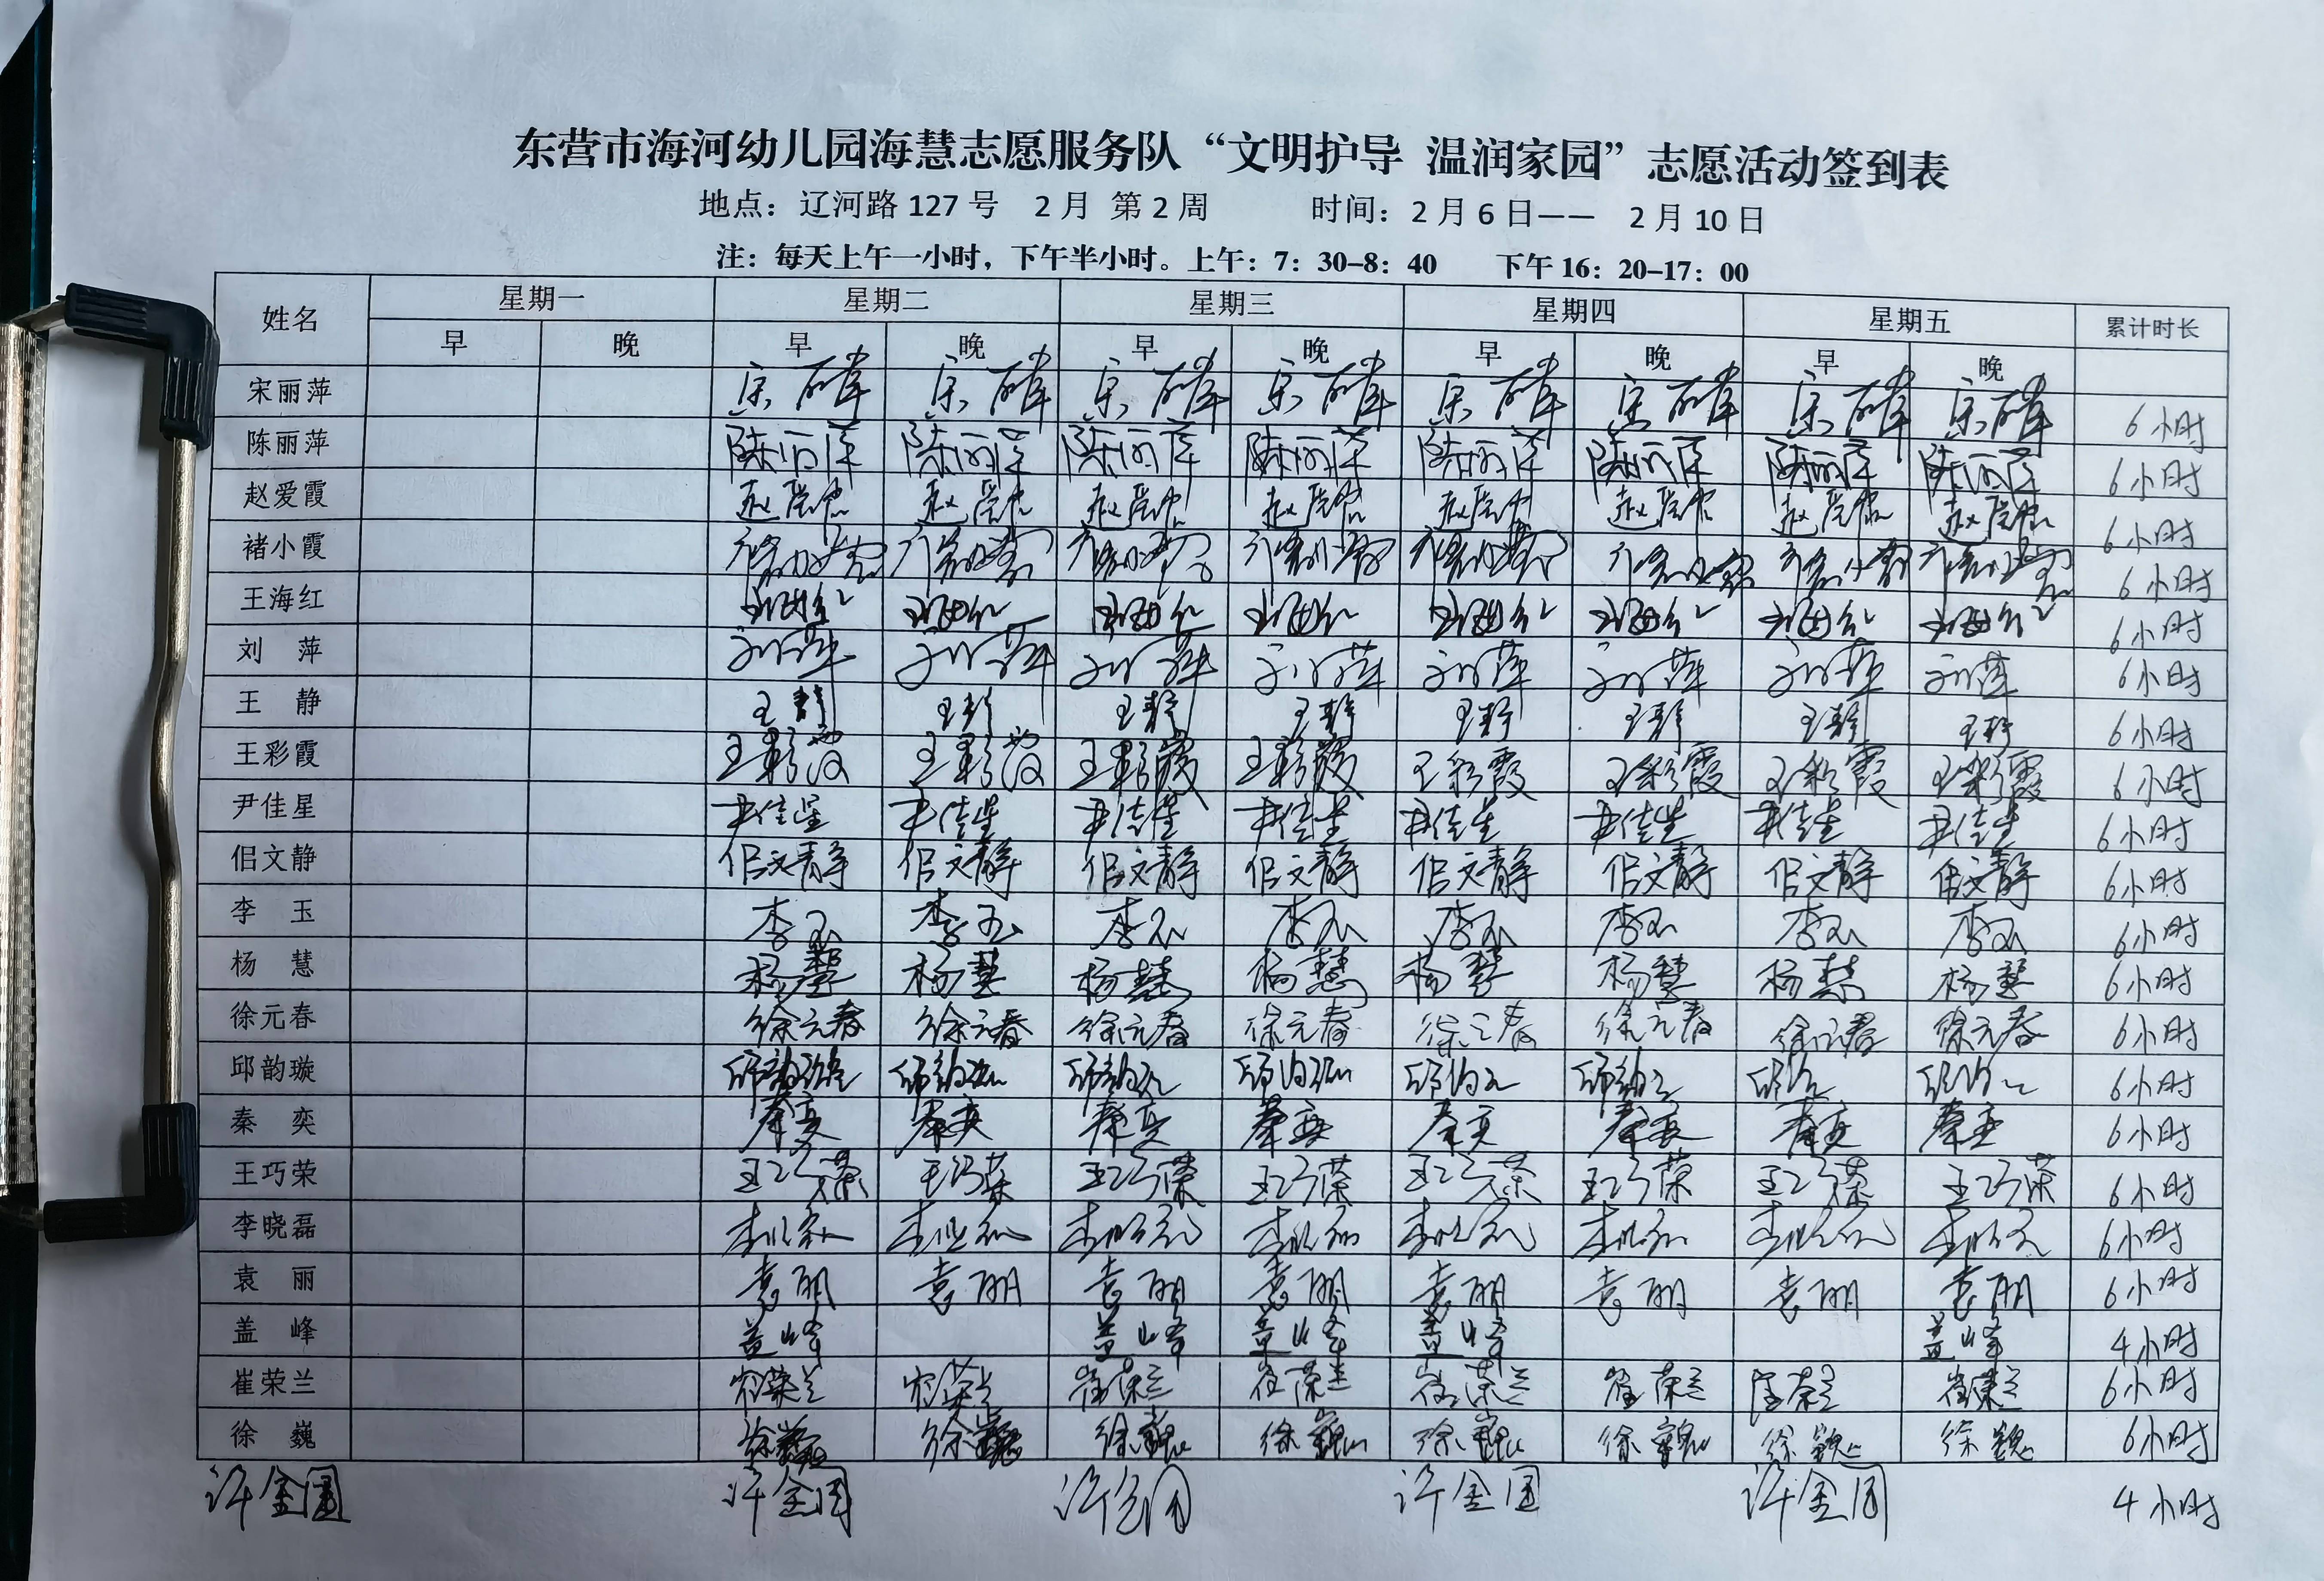 东营市海河幼儿园海慧志愿服务队“文明护导 温润家园”志愿活动签到表
地点：辽河路 127 号 2 月 第 2 周 时间：2 月 6 日—— 2 月 10 日
注：每天上午一小时，下午半小时。上午：7：30-8：40 下午 16：20-17：00
姓名 星期一 星期二 星期三 星期四 星期五 累计时长
早 晚 早 晚 早 晚 早 晚 早 晚
宋丽萍 6小时
陈丽萍 陈丽萍 陈丽萍 陈丽萍 陈丽萍 陈丽萍 陈丽萍 陈丽萍 陈丽萍 6小时
赵爱霞 6小时
褚小霞 6小时
王海红 王海红 王海红 王海红 王海红 王海红 王海红 王海红 王海红 6小时
刘 萍 刘萍 刘萍 刘萍 刘萍 刘萍 刘萍 刘萍 刘萍 6小时
王 静 王静 王静 王静 王静 王静 王静 王静 王静 6小时
王彩霞 王彩霞 王彩霞 王彩霞 王彩霞 王彩霞 王彩霞 王彩霞 王彩霞 6小时
尹佳星 尹佳星 尹佳星 尹佳星 尹佳星 尹佳星 尹佳星 尹佳星 尹佳星 6小时
佀文静 佀文静 佀文静 佀文静 佀文静 佀文静 佀文静 佀文静 佀文静 6小时
李 玉 李玉 李玉 李玉 李玉 李玉 李玉 李玉 李玉 6小时
杨 慧 杨慧 杨慧 杨慧 杨慧 杨慧 杨慧 杨慧 杨慧 6小时
徐元春 徐元春 徐元春 徐元春 徐元春 徐元春 徐元春 徐元春 徐元春 6小时
邱韵璇 6小时
秦 奕 秦奕 秦奕 秦奕 秦奕 秦奕 秦奕 秦奕 秦奕 6小时
王巧荣 王巧荣 王巧荣 王巧荣 王巧荣 王巧荣 王巧荣 王巧荣 王巧荣 6小时
李晓磊 6小时
袁 丽 袁丽 袁丽 袁丽 袁丽 袁丽 袁丽 袁丽 袁丽 6小时
盖 峰 盖峰 盖峰 盖峰 盖峰 盖峰 4小时
崔荣兰 崔荣兰 崔荣兰 崔荣兰 崔荣兰 崔荣兰 崔荣兰 崔荣兰 崔荣兰 6小时
徐 巍 徐巍 徐巍 徐巍 徐巍 徐巍 徐巍 徐巍 徐巍 6小时
许金国 许金国 许金国 许金国 许金国 4小时